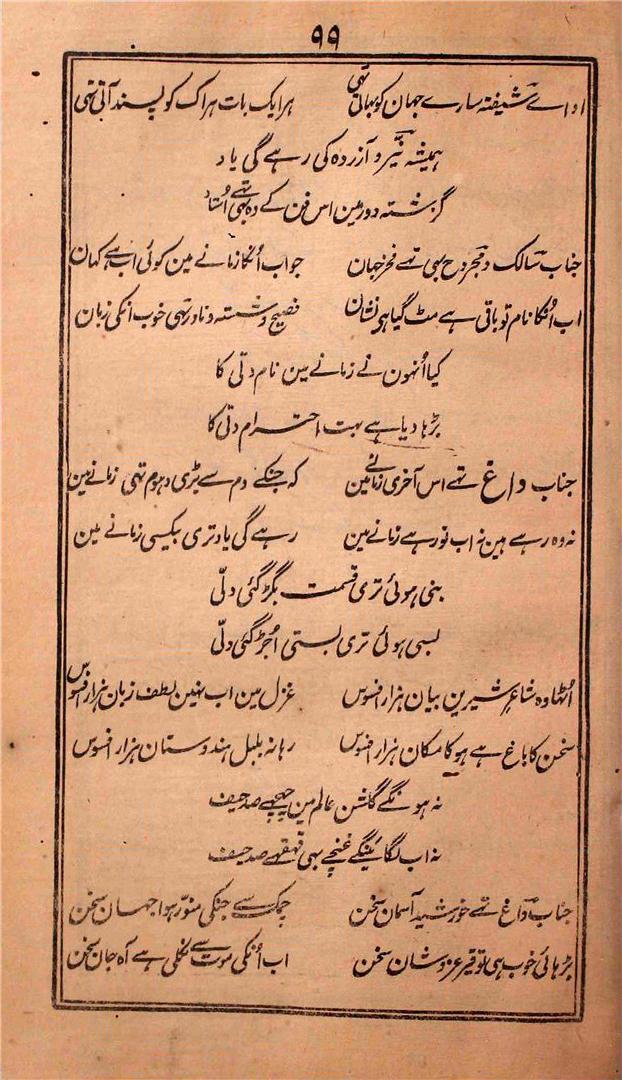 ۹۹
ادائے شیفتہ سارے جہان کو بھاتی تہی ہر ایک بات ہر اک کو پسند آتی تہی
ہمیشہ نیّر و آزردہ کی رہے گی یاد
گزشتہ دور مین اس فن کے وہ بہی تہے اُستاد
جناب سالک و مجروح بہی تہے فخر جہان جواب اُنکا زمانے مین کوئی اب ہے کہان
اب اُنکا نام تو باقی ہے مٹ گیا ہی نشان فصیح و شستہ و نادر تہی خوب انکی زبان
کیا اُنہون نے زمانے مین نام دتی کا
بڑہا دیا ہے بہت احترام دتی کا
جناب داغ تہے اس آخری زمانے مین کہ جنکے دم سے بڑی دہوم تہی زمانے مین
نہ وہ رہے ہین نہ اب نور ہے زمانے مین رہے گی یاد تری بیکسی زمانے مین
بنی ہوئی تری قسمت بگڑ گئی دلّی
بسی ہوئی تری بستی اُجڑ گئی دلّی
اُٹہا وہ شاعر شیرین بیان ہزار افسوس غزل مین اب نہین لطف زبان ہزار افسوس
سخن کا باغ ہے ہو کا مکان ہزار افسوس رہا نہ بلبل ہندوستان ہزار افسوس
نہ ہونگے گلشن عالم مین چہچہے صد حیف
نہ اب لگائینگے غنچے بہی قہقہے صد حیف
جناب داغ تہے خورشید آسمان سخن چمک سے جنکی منوّر ہوا جہان سخن
بڑہائی خوب ہی توقیر عز و شان سخن اب اُنکی موت سے نکلی ہے آہ جان سخن